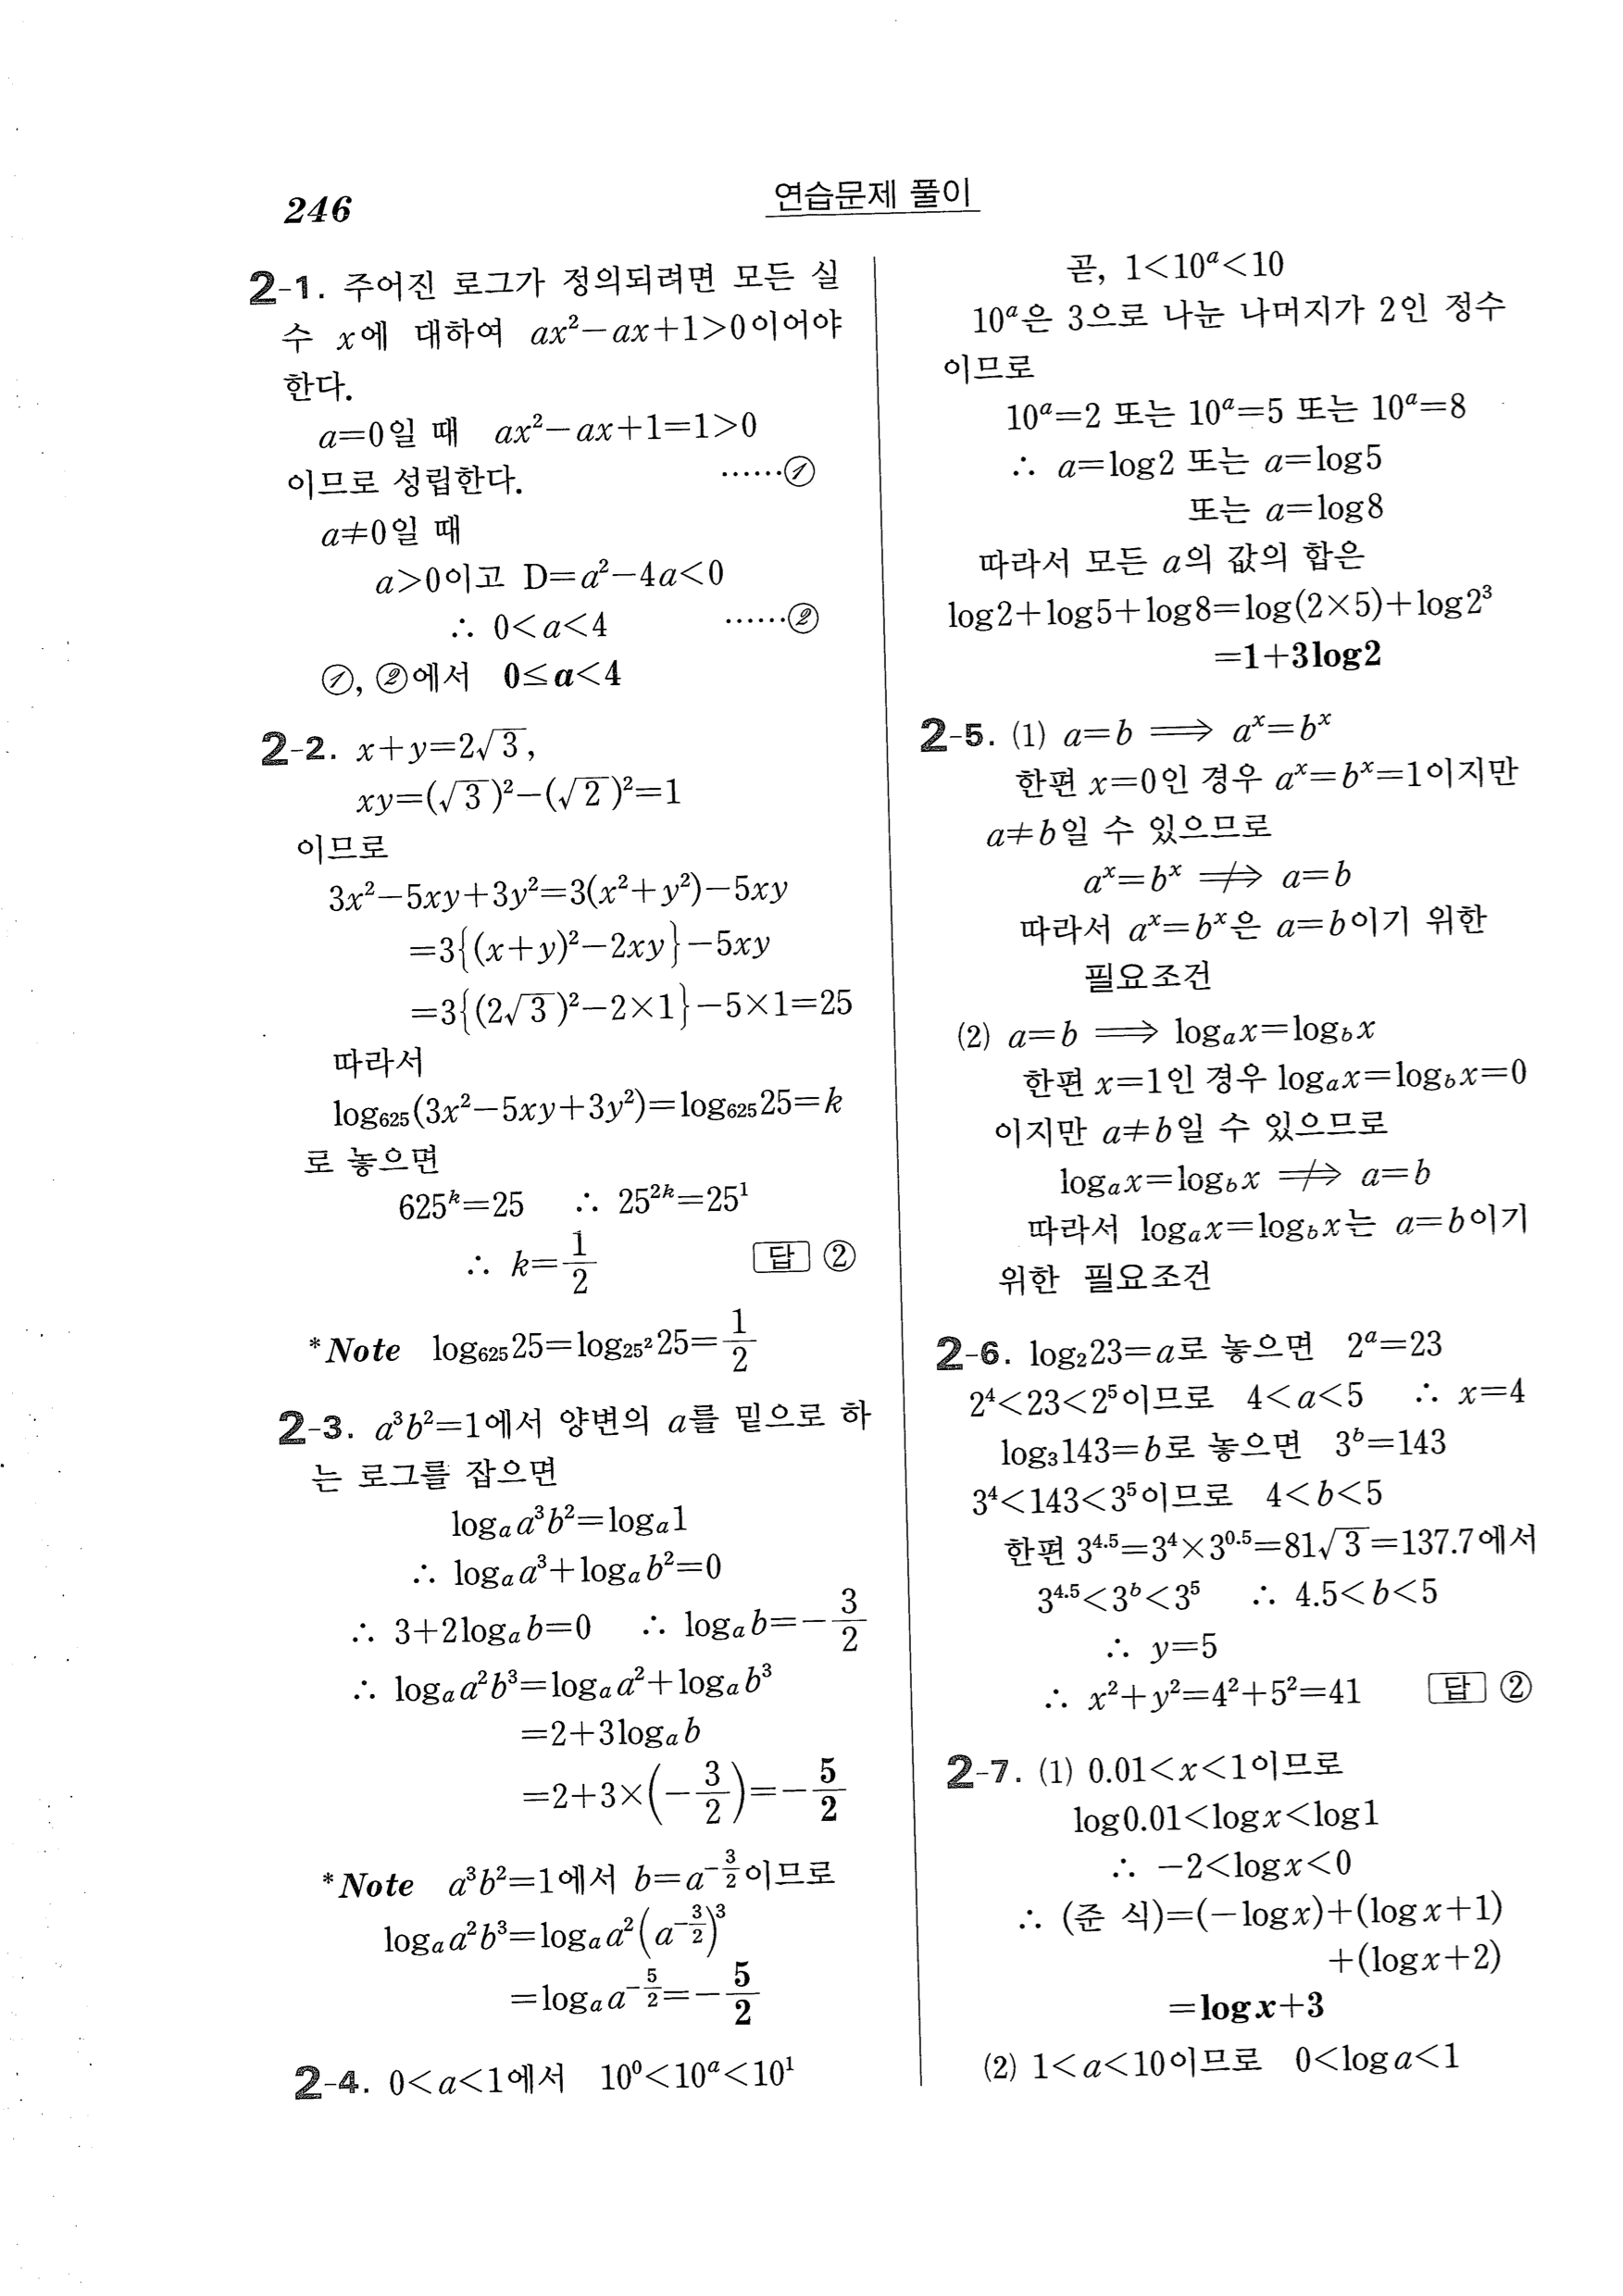 246
연습문제 풀이
2-1. 주어진 로그가 정의되려면 모든 실
수 x에 대하여 ax²−ax+1>0이어야
한다.
a=0일 때 ax²−ax+1=1>0
이므로 성립한다. ······①
a≠0일 때
a>0이고 D=a²−4a<0
∴ 0<a<4 ······②
①, ②에서 0≤a<4
2-2. x+y=2√3,
xy=(√3)²−(√2)²=1
이므로
3x²−5xy+3y²=3(x²+y²)−5xy
=3{(x+y)²−2xy}−5xy
=3{(2√3)²−2×1}−5×1=25
따라서
log₆₂₅(3x²−5xy+3y²)=log₆₂₅25=k
로 놓으면
625ᵏ=25 ∴ 25²ᵏ=25¹
∴ k=1/2 답 ②
*Note log₆₂₅25=log_{25²}25=1/2
2-3. a³b²=1에서 양변의 a를 밑으로 하
는 로그를 잡으면
logₐa³b²=logₐ1
∴ logₐa³+logₐb²=0
∴ 3+2logₐb=0 ∴ logₐb=−3/2
∴ logₐa²b³=logₐa²+logₐb³
=2+3logₐb
=2+3×(−3/2)=−5/2
*Note a³b²=1에서 b=a^{−3/2}이므로
logₐa²b³=logₐa²(a^{−3/2})³
=logₐa^{−5/2}=−5/2
2-4. 0<a<1에서 10⁰<10ᵃ<10¹
곧, 1<10ᵃ<10
10ᵃ은 3으로 나눈 나머지가 2인 정수
이므로
10ᵃ=2 또는 10ᵃ=5 또는 10ᵃ=8
∴ a=log2 또는 a=log5
또는 a=log8
따라서 모든 a의 값의 합은
log2+log5+log8=log(2×5)+log2³
=1+3log2
2-5. (1) a=b ⟹ aˣ=bˣ
한편 x=0인 경우 aˣ=bˣ=1이지만
a≠b일 수 있으므로
aˣ=bˣ ⇏ a=b
따라서 aˣ=bˣ은 a=b이기 위한
필요조건
(2) a=b ⟹ logₐx=log_b x
한편 x=1인 경우 logₐx=log_b x=0
이지만 a≠b일 수 있으므로
logₐx=log_b x ⇏ a=b
따라서 logₐx=log_b x는 a=b이기
위한 필요조건
2-6. log₂23=a로 놓으면 2ᵃ=23
2⁴<23<2⁵이므로 4<a<5 ∴ x=4
log₃143=b로 놓으면 3ᵇ=143
3⁴<143<3⁵이므로 4<b<5
한편 3^{4.5}=3⁴×3^{0.5}=81√3=137.7에서
3^{4.5}<3ᵇ<3⁵ ∴ 4.5<b<5
∴ y=5
∴ x²+y²=4²+5²=41 답 ②
2-7. (1) 0.01<x<1이므로
log0.01<logx<log1
∴ −2<logx<0
∴ (준 식)=(−logx)+(logx+1)
+(logx+2)
=logx+3
(2) 1<a<10이므로 0<loga<1